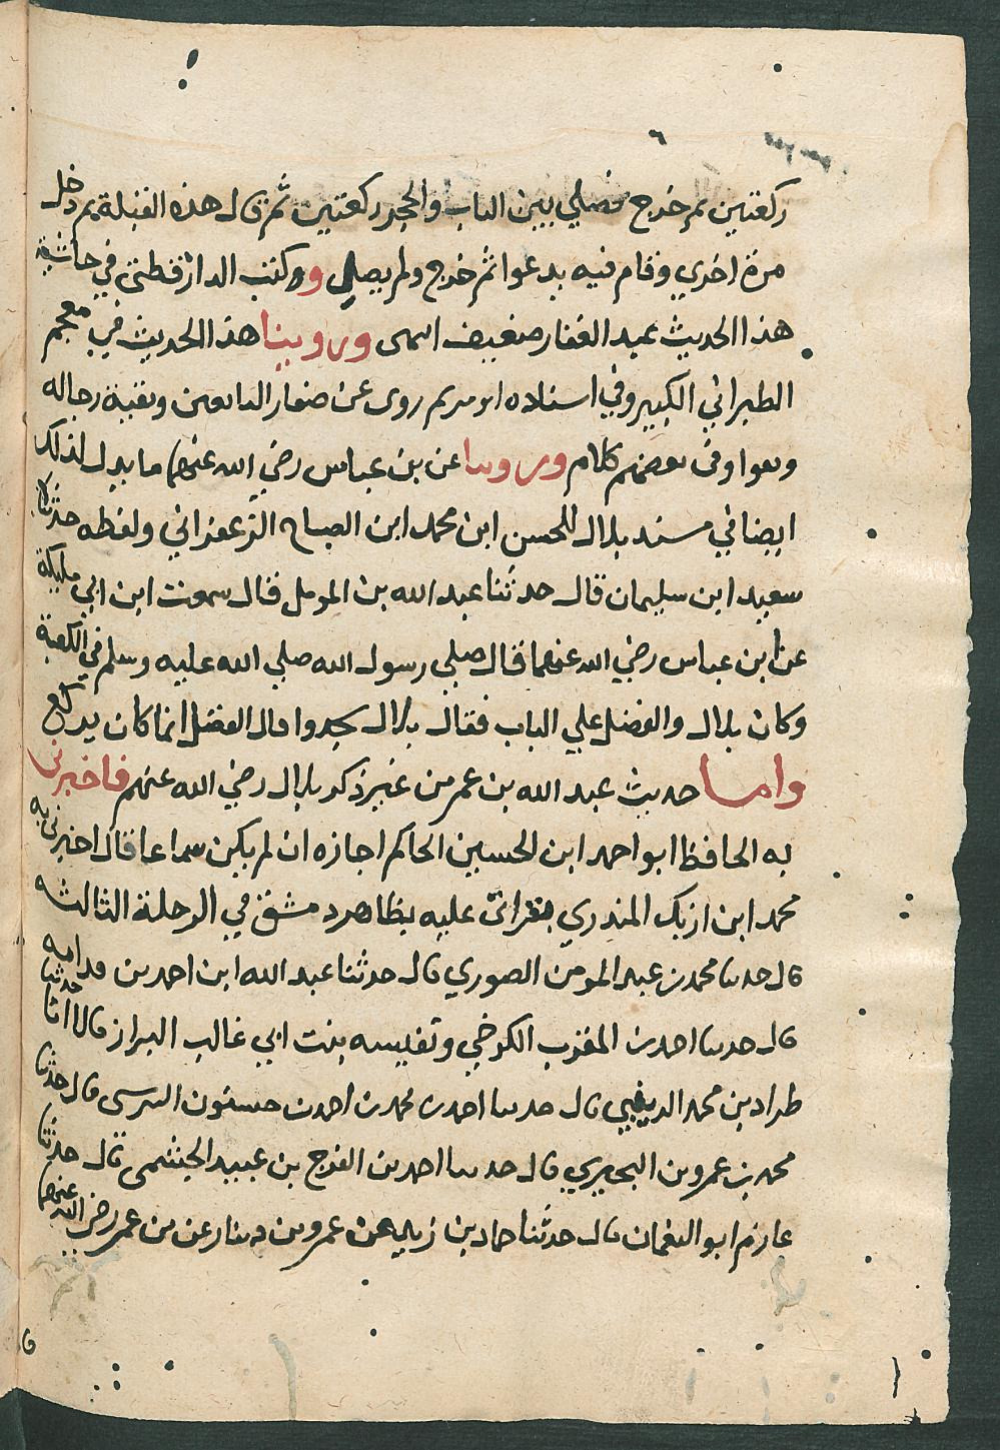 ركعتين ثم خرج فصلي بين الباب والحجر ركعتين ثم قال هذه القبلة ثم دخل
مرة اخري وقام فيه يدعوا ثم خرج ولم يصلي وكتب الدارقطني في حاشية
هذا الحديث عبد الغفار ضعيف انتهى وروينا هذا الحديث في معجم
الطبراني الكبير وفي اسناده ابو مريم روى عن صغار التابعين وبقية رجاله
وثقوا وفى بعضهم كلام وروينا عن بن عباس رضي الله عنهما ما يدل لذلك
ايضا في مسند بلال للحسن ابن محمد ابن الصباح الزعفراني ولفظه حدثنا
سعيد ابن سليمان قال حدثنا عبد الله بن المومل قال سمعت ابن ابي مليكة
عن ابن عباس رضي الله عنهما قال صلي رسول الله صلي الله عليه وسلم في الكعبة
وكان بلال والفضل علي الباب فقال بلال سجد وا قال الفضل انما كان يركع
واما حديث عبد الله بن عمر من غير ذكر بلال رضي الله عنهم فاخبرنى
به الحافظ ابو احمد ابن الحسين الحاكم اجازه ان لم يكن سماعا قال اخبرنى به
محمد ابن ازبك المندري بقراتى عليه بظاهر دمشق في الرحلة الثالثه
قال حدثنا محمد بن عبد المومن الصوري قال حدثنا عبد الله ابن احمد بن قدامه حدثنا
قال حدثنا احمد بن المقرب الكرخي ونفيسه بنت ابي غالب البزاز قالا انا
طراد بن محمد الزينبي قال حدثنا احمد بن محمد بن احمد بن حسنون النرسى قال حدثنا
محمد بن عمرو بن البحيري قال حدثنا احمد بن الفرج بن عبيد الجشمى قال حدثنا
عارم ابو النعمان قال حدثنا حماد بن زيد عن عمرو بن دينار عن بن عمر رضي الله عنهما